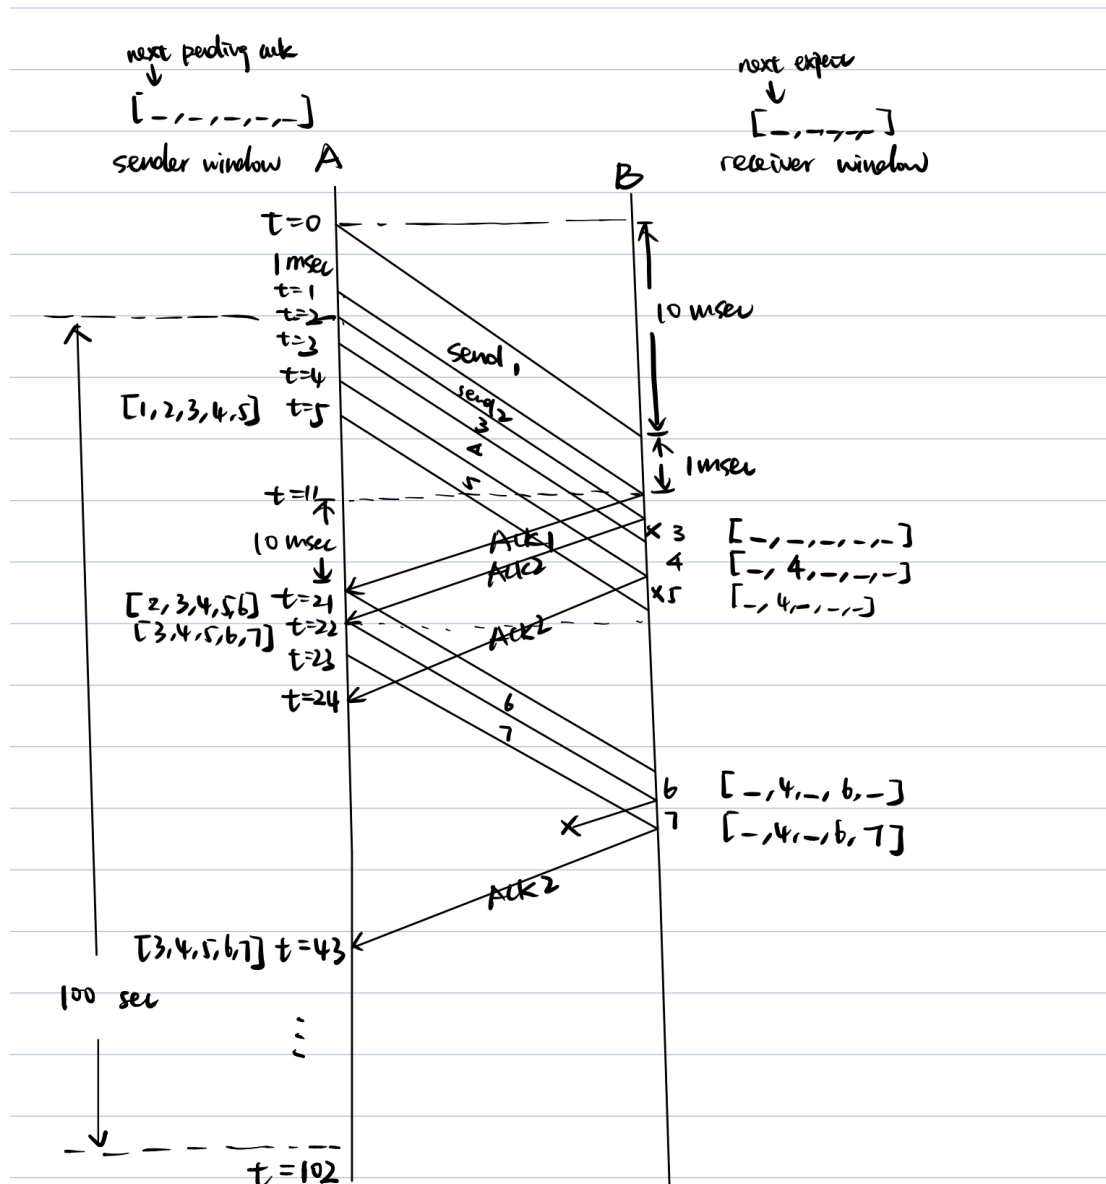 next pending ack
[_,_,_,_,_]
sender window A
next expect
[_,_,_,_]
receiver window
B
t=0
1 msec
t=1
t=2
t=3
t=4
[1,2,3,4,5] t=5
10 msec
1 msec
send 1
send 2
3
4
5
t=11
10 msec
Ack1
Ack2
Ack2
x 3 [_,_,_,_,_]
4 [_,4,_,_,_]
x 5 [_,4,_,_,_]
[2,3,4,5,6] t=21
[3,4,5,6,7] t=22
t=23
t=24
6
7
6 [_,4,_,6,_]
x
7 [_,4,_,6,7]
Ack2
[3,4,5,6,7] t=43
100 sec
t=102